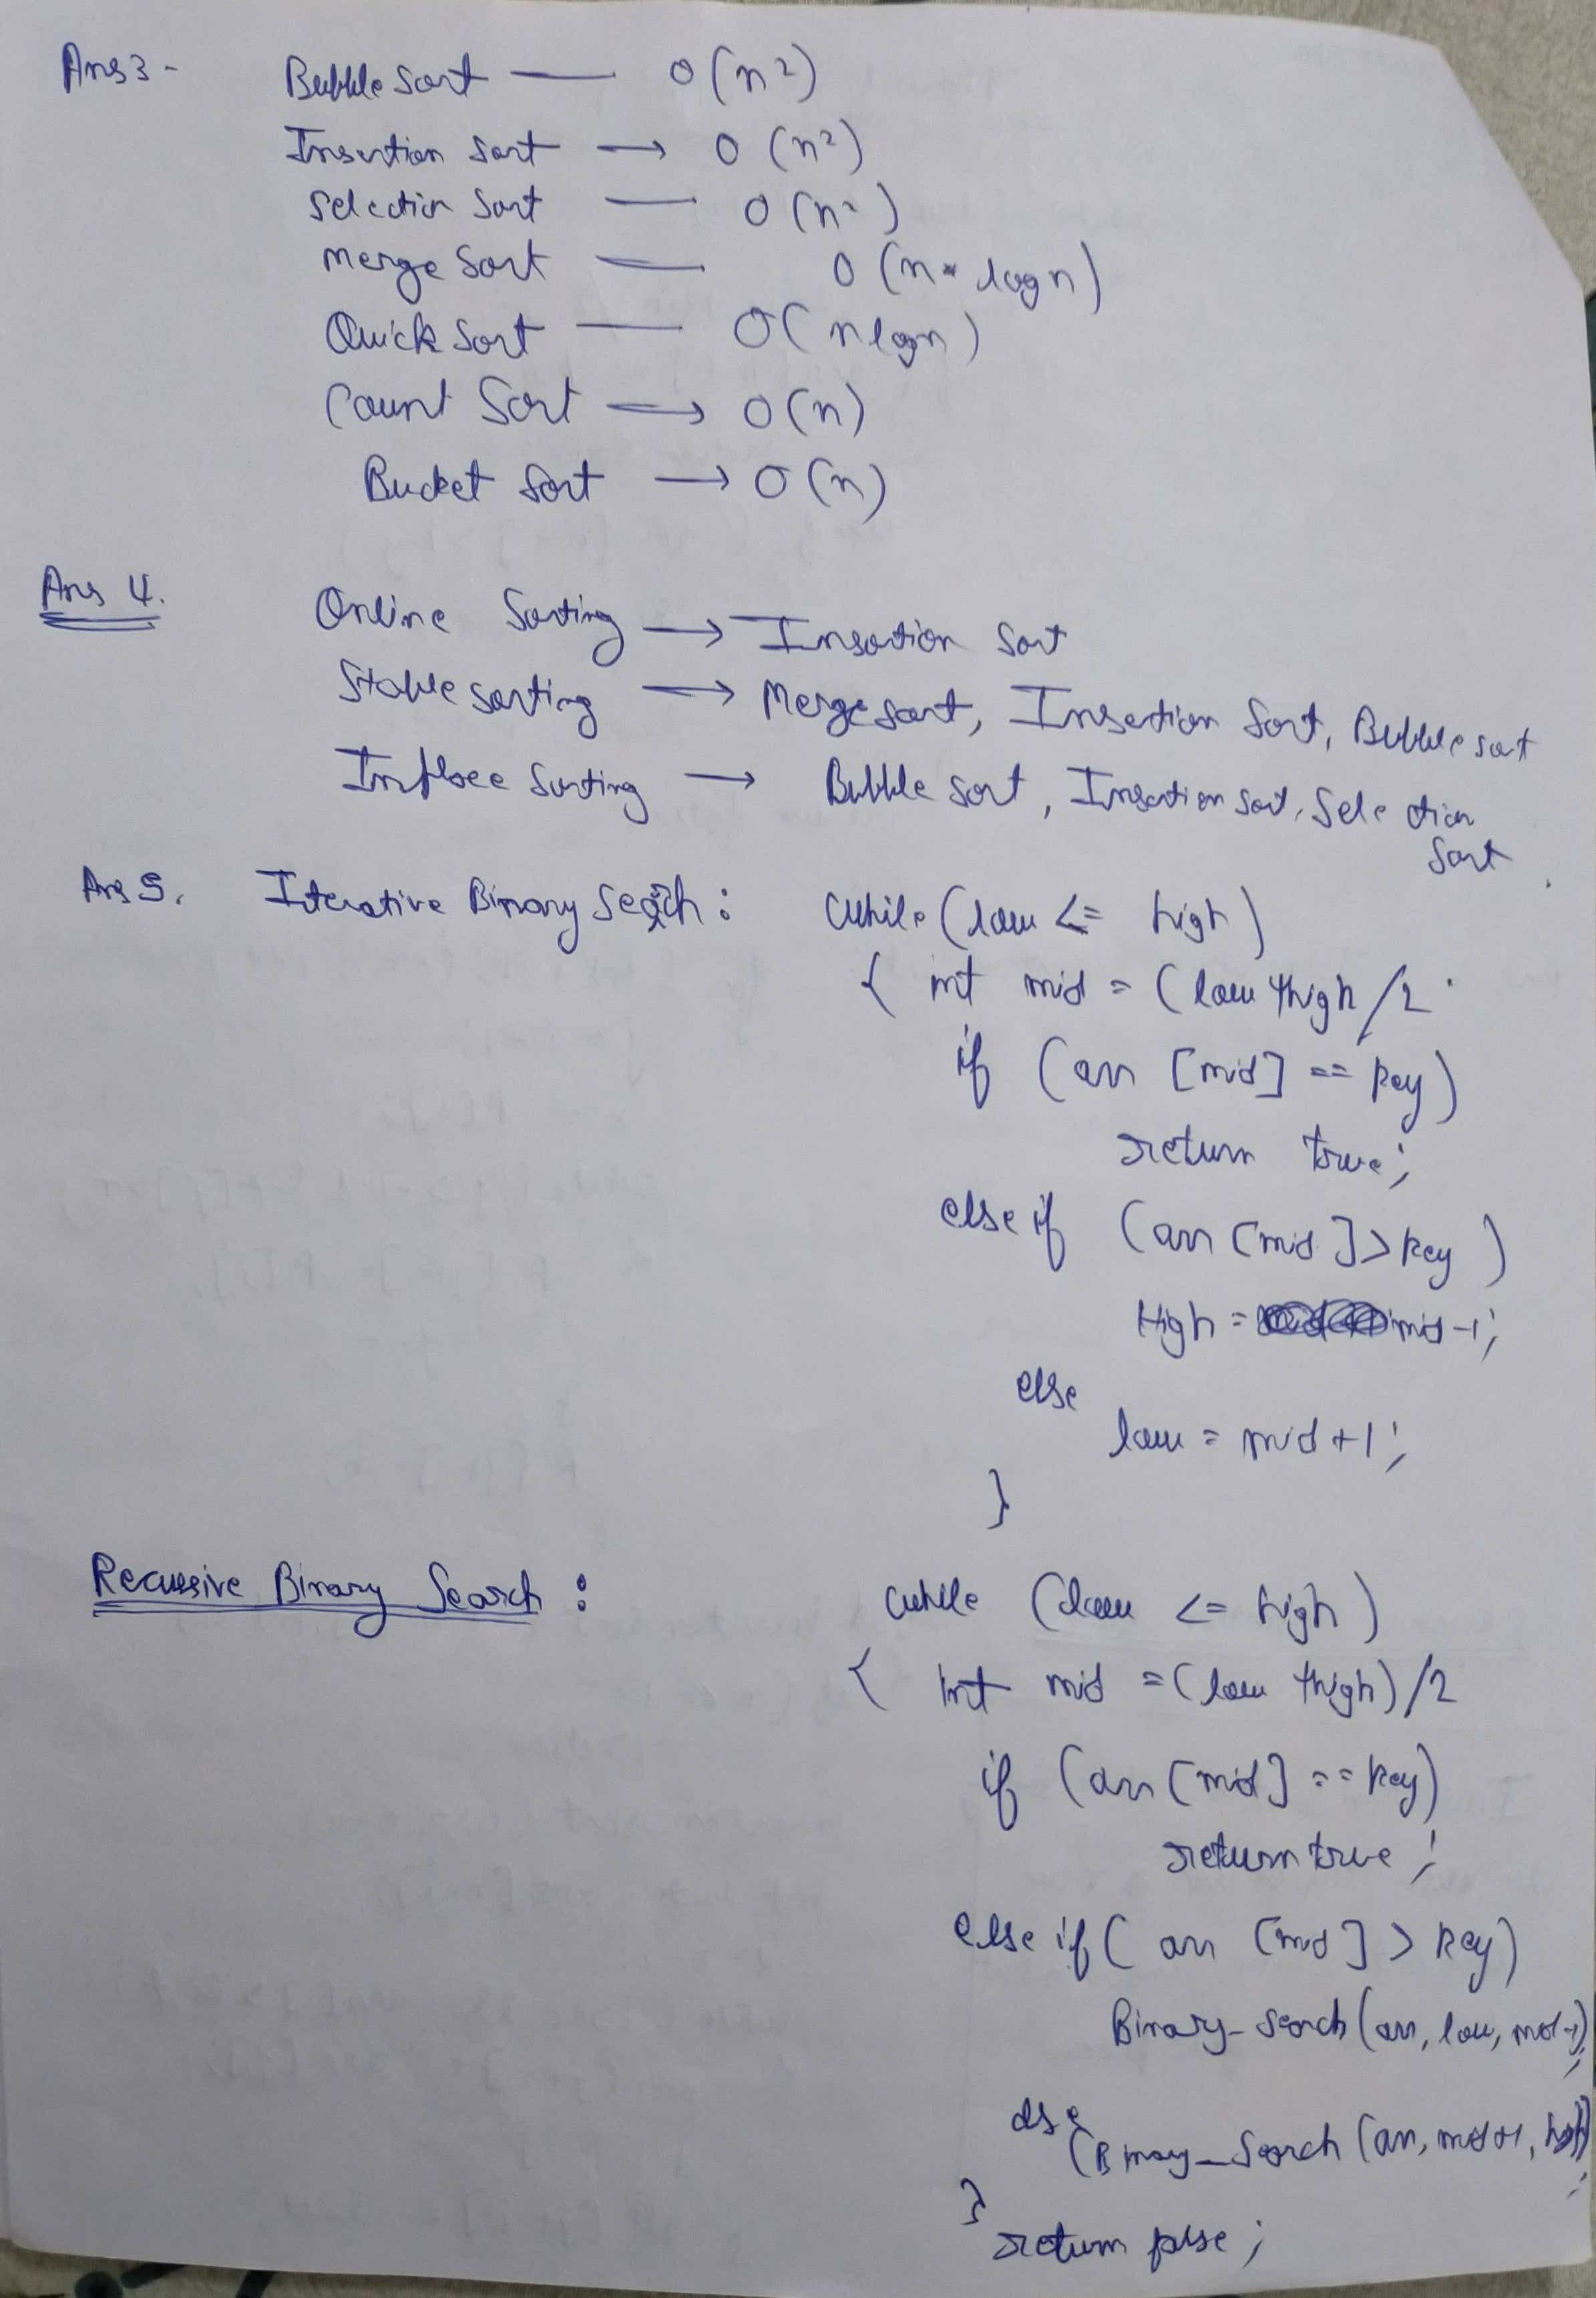 Ans 3 - Bubble Sort — O(n²)
Insertion Sort → O(n²)
Selection Sort — O(n²)
Merge Sort — O(n * log n)
Quick Sort — O(n log n)
Count Sort → O(n)
Bucket Sort → O(n)
Ans 4. Online Sorting → Insertion Sort
Stable sorting → Merge sort, Insertion Sort, Bubble sort
Inplace Sorting → Bubble Sort, Insertion Sort, Selection
Sort.
Ans 5. Iterative Binary Search : while (low <= high)
{ int mid = (low + high / 2
if (arr [mid] == key)
return true;
else if (arr [mid] > key)
High = mid - 1;
else
low = mid + 1;
}
Recursive Binary Search : while (low <= high)
{ Int mid = (low + high) / 2
if (arr [mid] == key)
return true;
else if (arr [mid] > key)
Binary_Search (arr, low, mid-1);
else
(Binary_Search (arr, mid+1, high);
}
return false;